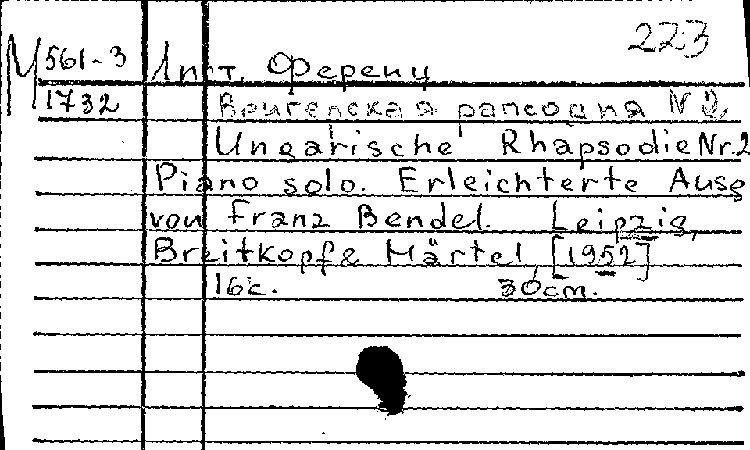 223
М 561-3 Лист, Ференц
1732 Венгенская рапсодия N 2,
Ungarische Rhapsodie Nr.2
Piano solo. Erleichterte Ausg
von Franz Bendel. Leipzig,
Breitkopf & Härtel, [1952]
16с. 30cm.